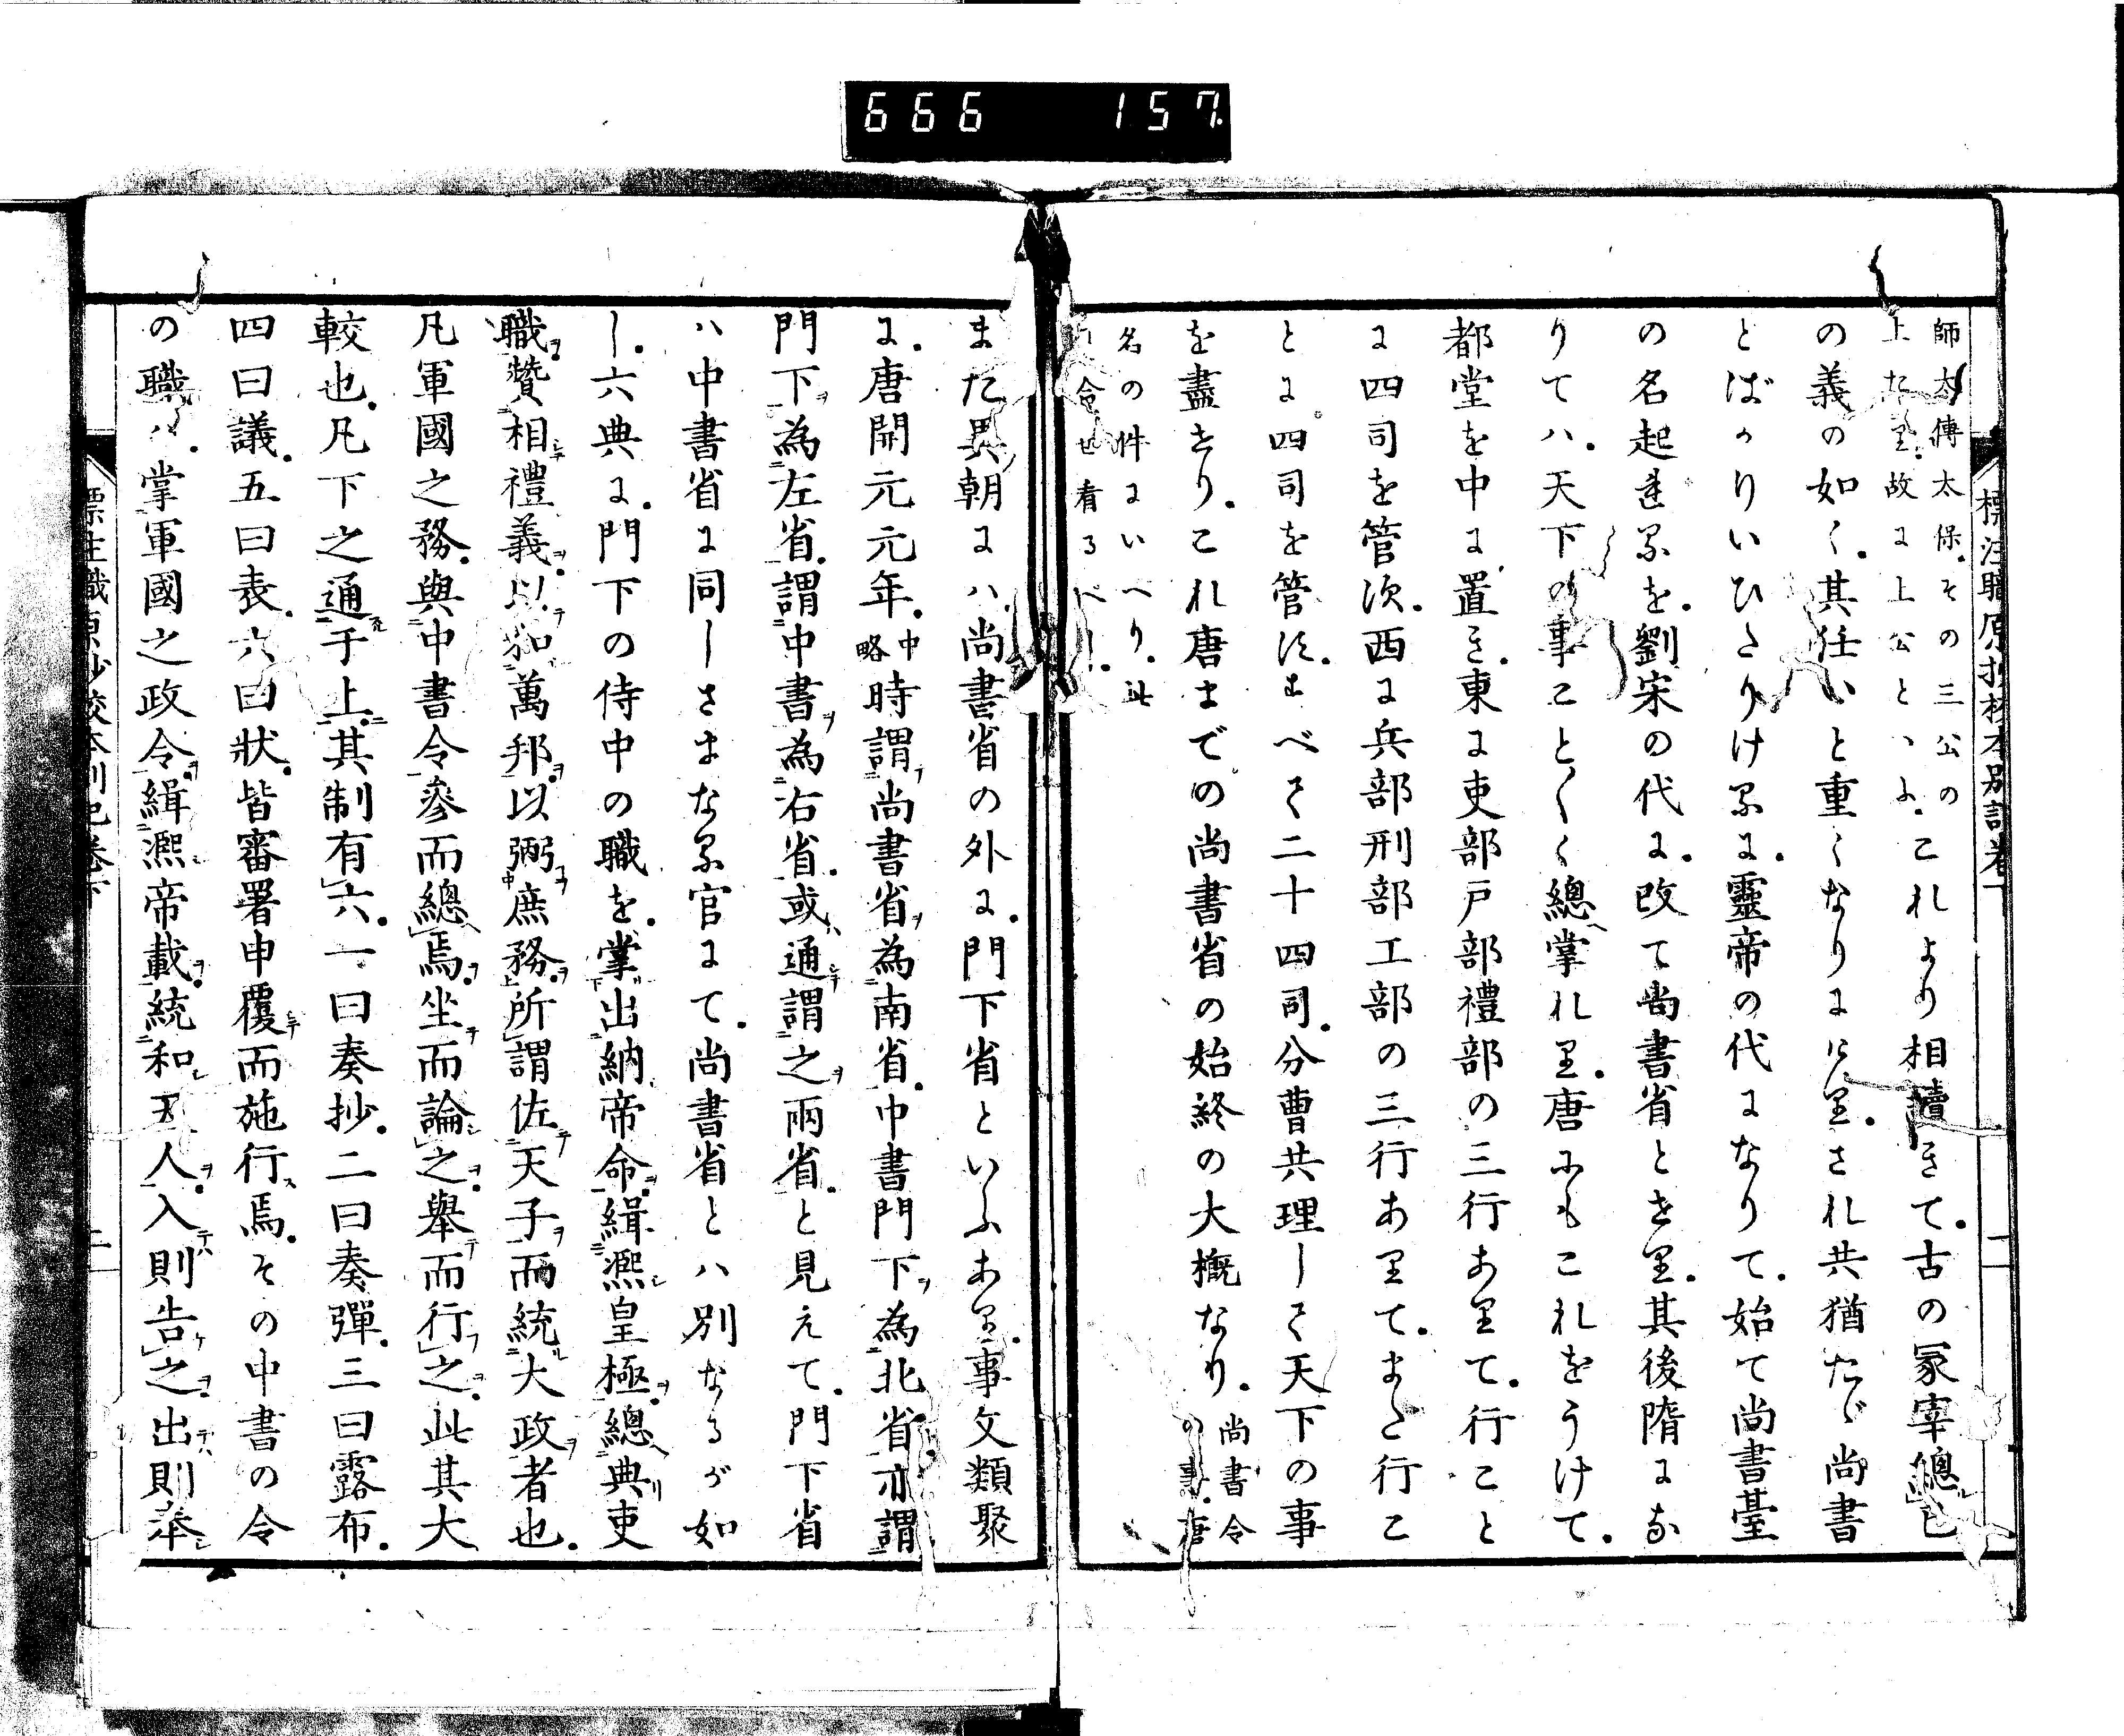 666 157
標注職原抄校本別記卷下
二
師太傅太保.その三公の
上たり.故に上公といふ.これより相續きて.古の冢宰總己
の義の如く.其任いと重くなりにけり.されども猶たゞ尚書
とばかりいひたりけるに.靈帝の代になりて.始て尚書臺
の名起れるを.劉宋の代に.改て尚書省とせり.其後隋にな
りてハ.天下の事ことごとく總掌れり.唐にもこれをうけて.
都堂を中に置き.東に吏部戸部禮部の三行ありて.行こと
に四司を管次.西に兵部刑部工部の三行ありて.また行こ
とに四司を管次.すべて二十四司.分曹共理して天下の事
を盡せり.これ唐までの尚書省の始終の大概なり.尚書令の事.唐
名の件にいへり.此
令せ看るべし.
また異朝にハ.尚書省の外に.門下省といふあり.事文類聚
に.唐開元元年.中略時謂尚書省為南省.中書門下為北省.亦謂
門下為左省.謂中書為右省.或通謂之兩省.と見えて.門下省
ハ中書省に同しさまなる官にて.尚書省とハ別なるが如
し.六典に.門下の侍中の職を.掌出納帝命.緝熙皇極.總典吏
職.贊相禮義.以和萬邦.以弼庶務.所謂佐天子而統大政者也.
凡軍國之務.與中書令參而總焉.坐而論之.舉而行之.此其大
較也.凡下之通于上.其制有六.一曰奏抄.二曰奏彈.三曰露布.
四曰議.五曰表.六曰狀.皆審署申覆而施行焉.その中書の令
の職ハ.掌軍國之政令.緝熙帝載.統和天人.入則告之.出則奉
標注職原抄校本別記卷下
二